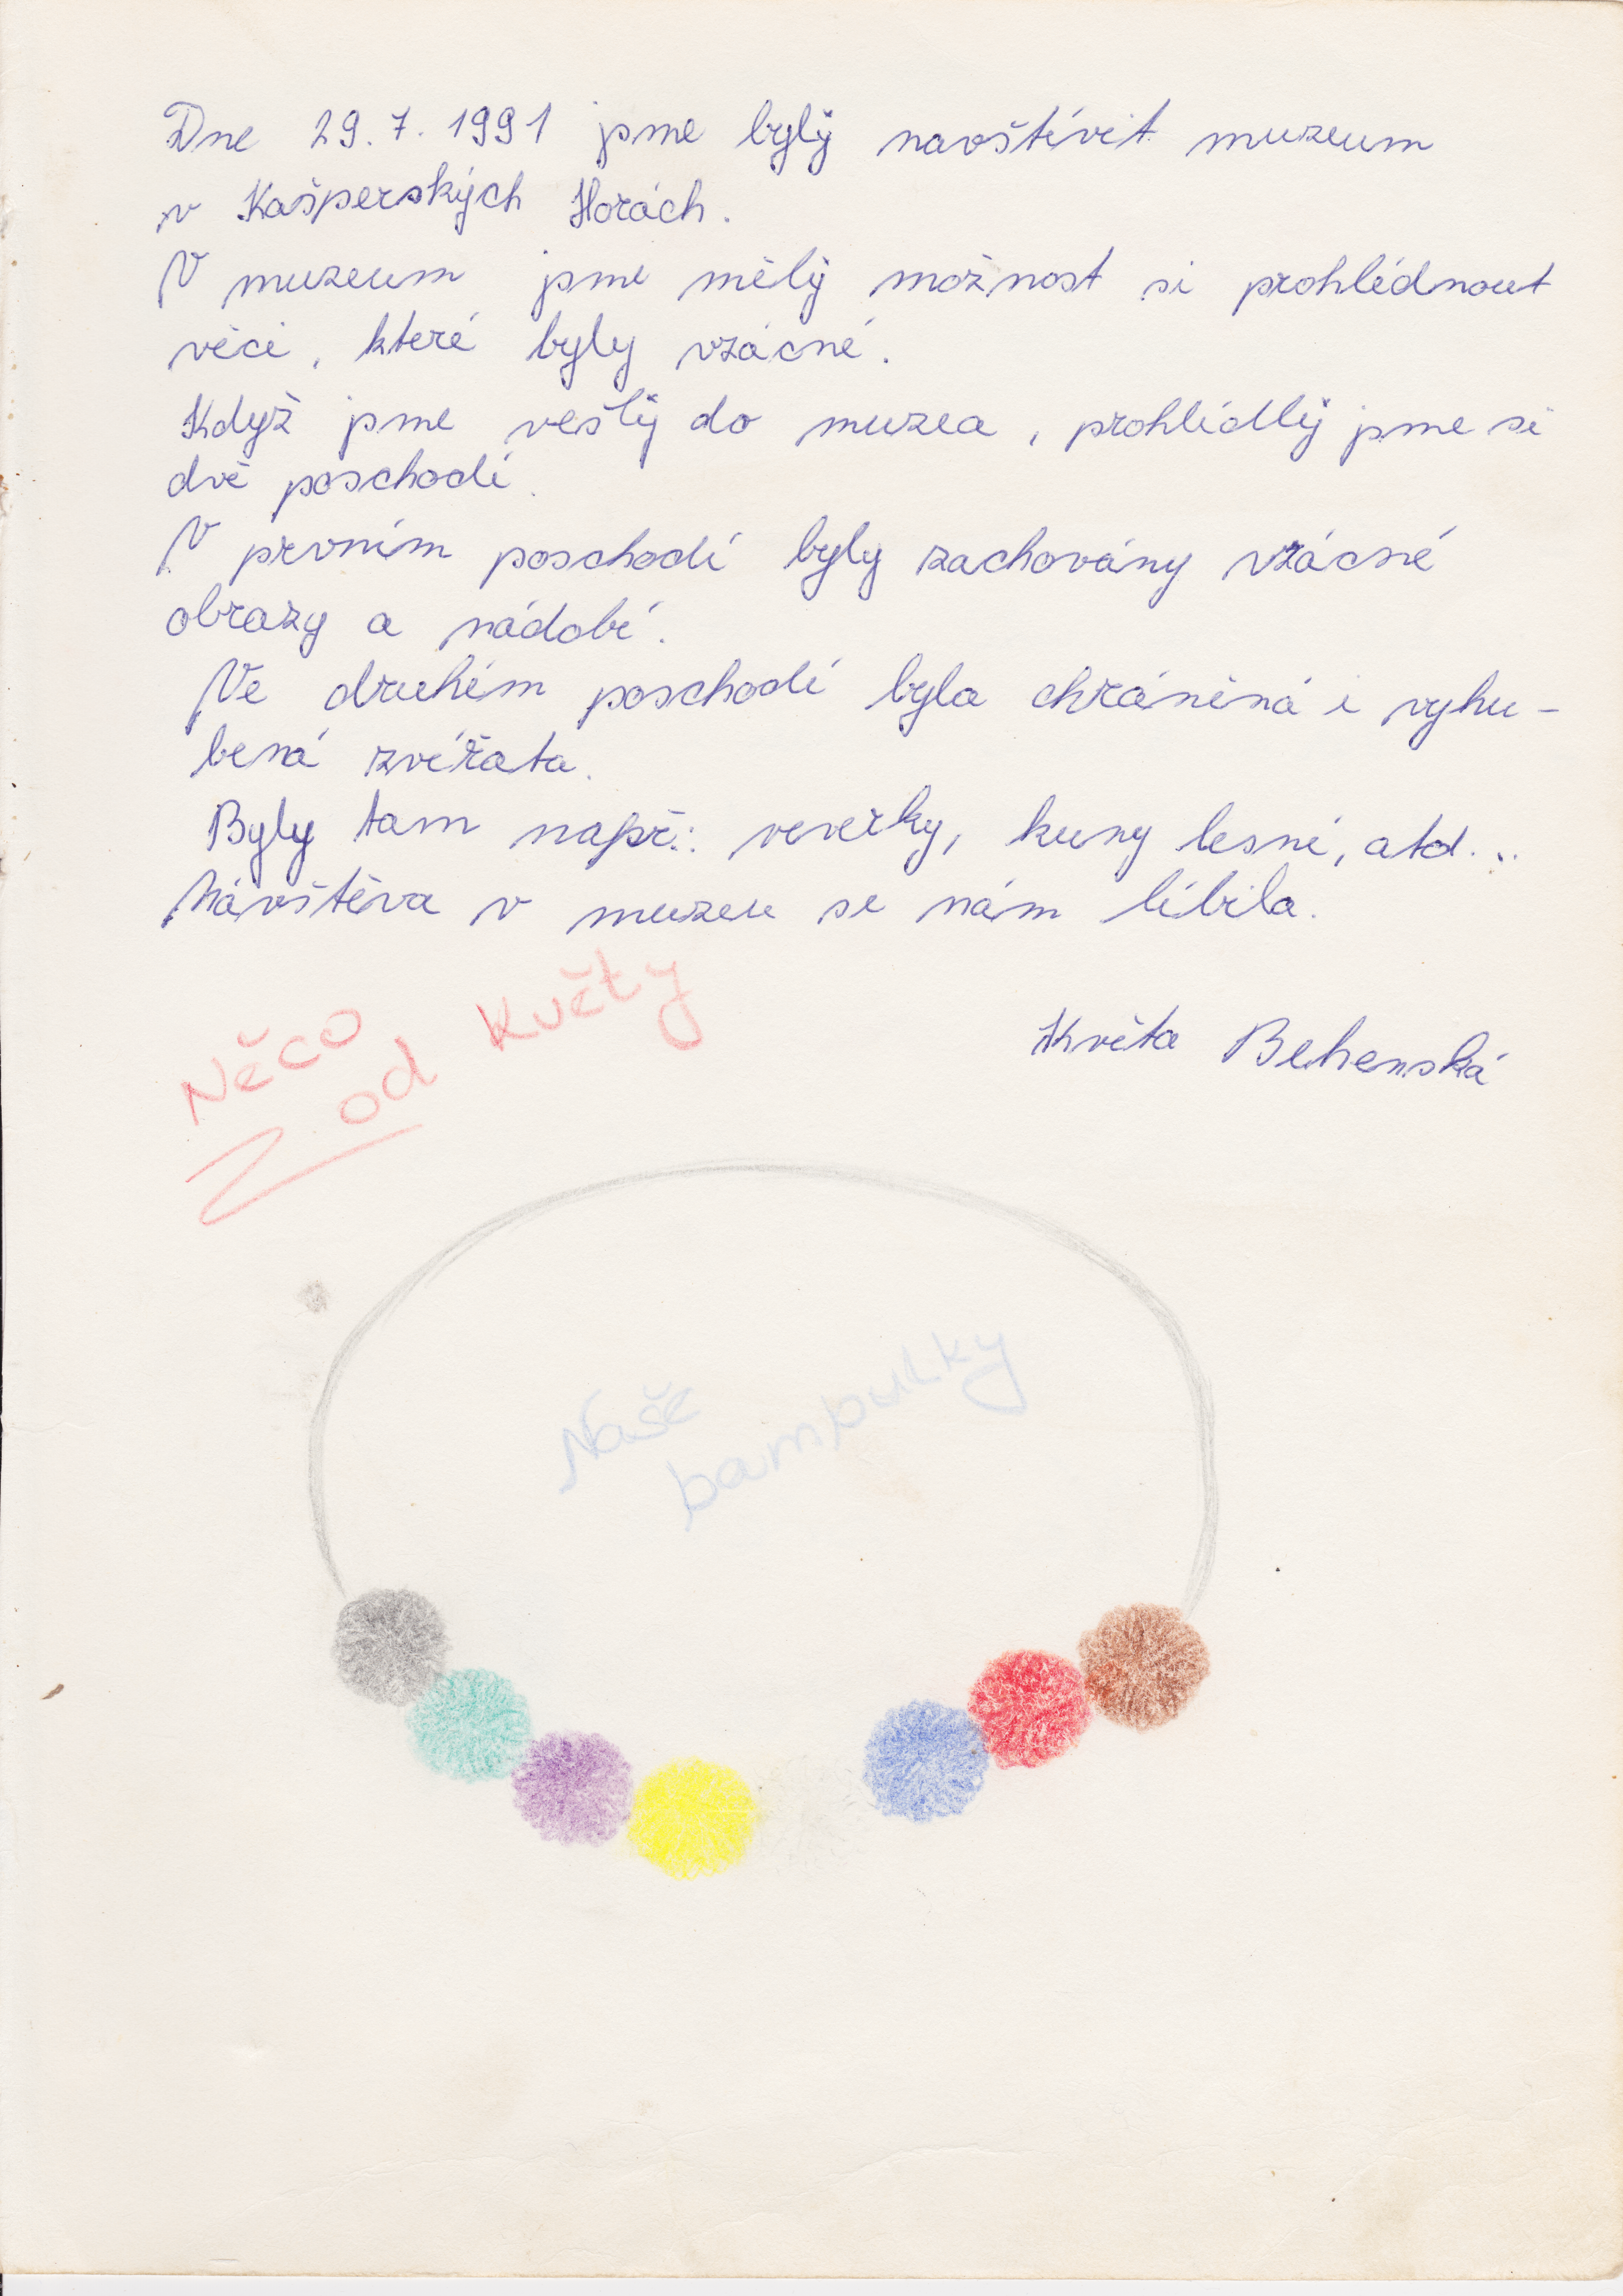 Dne 29. 7. 1991 jsme byly navštívit muzeum
v Kašperských Horách.
V muzeum jsme měly možnost si prohlédnout
věci, které byly vzácné.
Když jsme vešly do muzea, prohlédly jsme si
dvě poschodí.
V prvním poschodí byly zachovány vzácné
obrazy a nádobí.
Ve druhém poschodí byla chráněná i vyhu-
bená zvířata.
Byly tam např.: veverky, kuny lesní, atd...
Návštěva v muzeu se nám líbila.
Něco
od Květy
Květa Behenská
Naše
bampulky